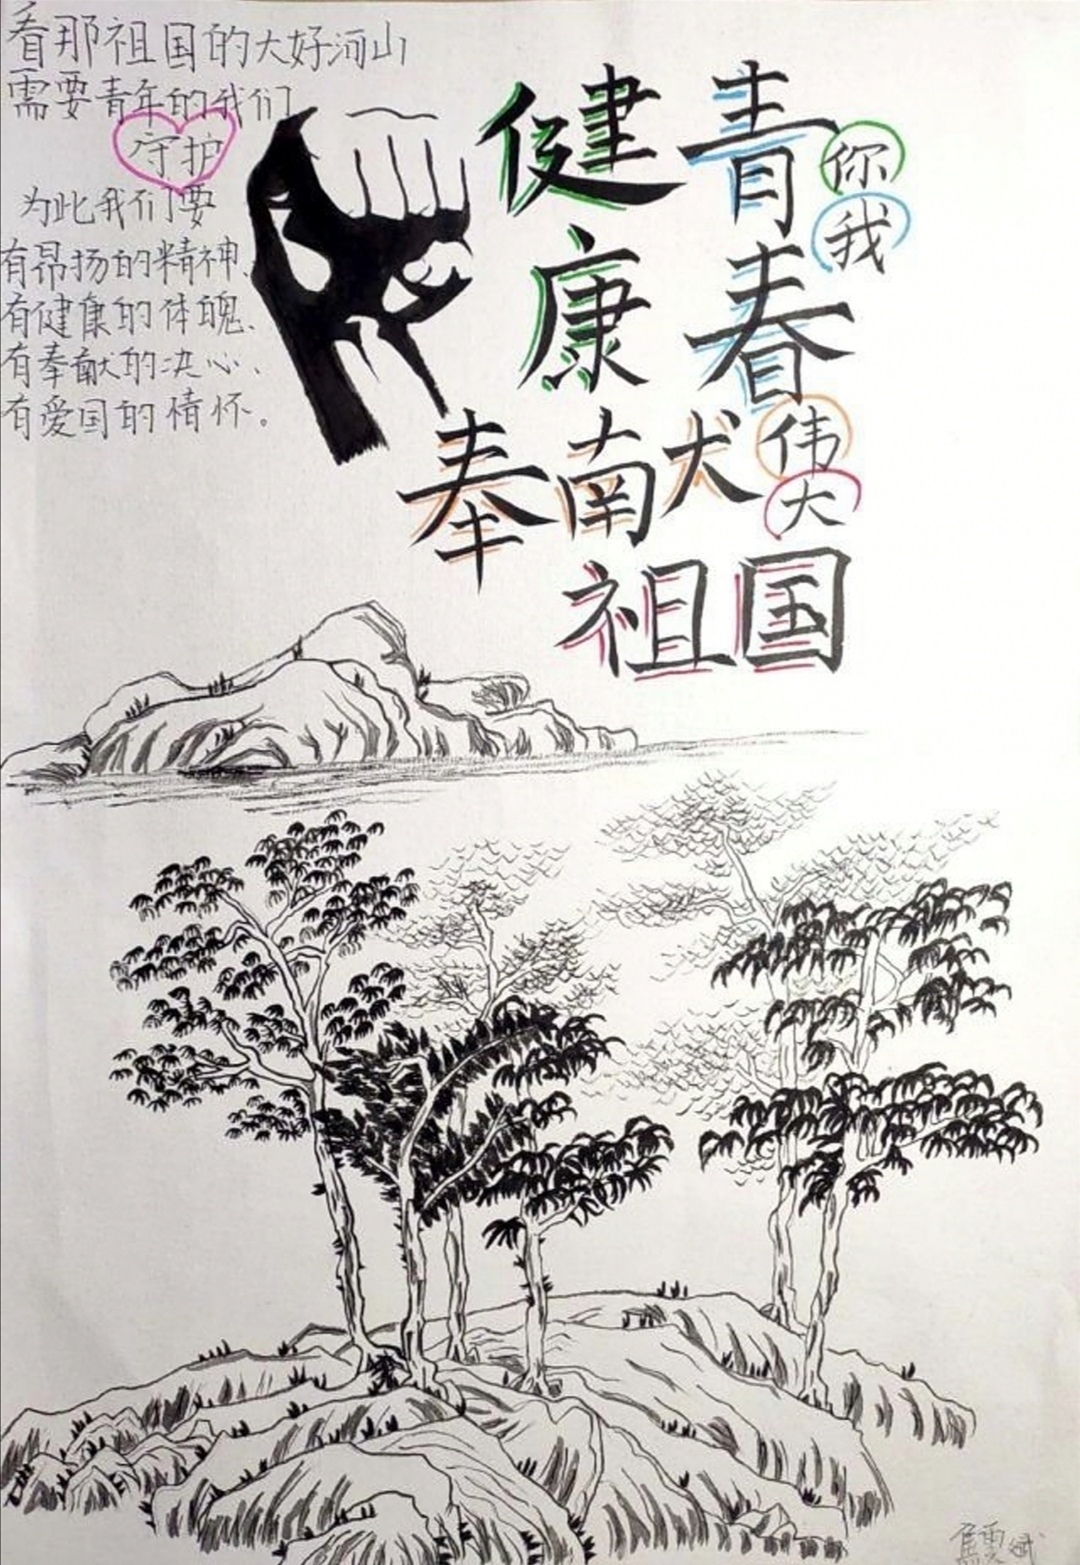 看那祖国的大好河山
需要青年的我们
守护
为此我们要
有昂扬的精神、
有健康的体魄、
有奉献的决心、
有爱国的情怀。
健 青 你
我
康 春
奉 献 伟
大
祖国